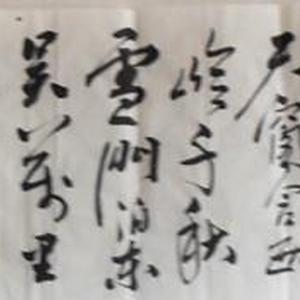 天窗含西
岭千秋
雪門泊东
吴萬里